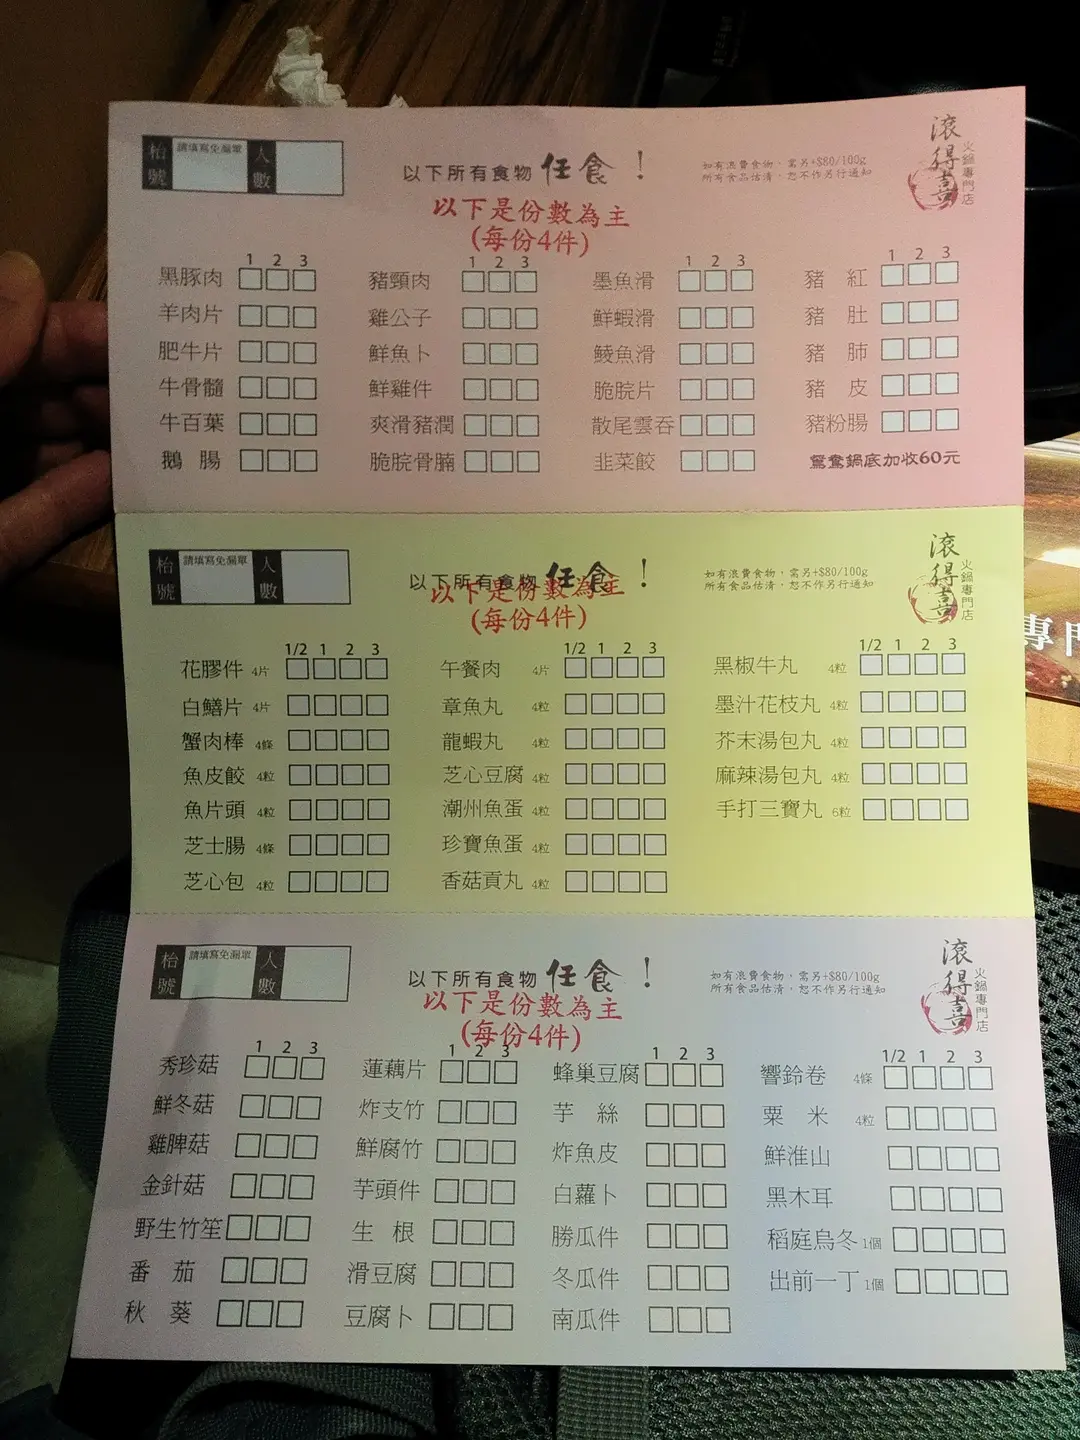 枱號 請填寫免漏單 人數
以下所有食物 任食！
如有浪費食物，需另+$80/100g
所有食品估清，恕不作另行通知
滾得喜
火鍋專門店
以下是份數為主
(每份4件)
1 2 3 1 2 3 1 2 3 1 2 3
黑豚肉 豬頸肉 墨魚滑 豬紅
羊肉片 雞公子 鮮蝦滑 豬肚
肥牛片 鮮魚卜 鯪魚滑 豬肺
牛骨髓 鮮雞件 脆脘片 豬皮
牛百葉 爽滑豬潤 散尾雲吞 豬粉腸
鵝腸 脆脘骨腩 韭菜餃 鴛鴦鍋底加收60元
枱號 請填寫免漏單 人數
以下所有食物 任食！
如有浪費食物，需另+$80/100g
所有食品估清，恕不作另行通知
滾得喜
火鍋專門店
以下是份數為主
(每份4件)
1/2 1 2 3 1/2 1 2 3 1/2 1 2 3
花膠件 4片 午餐肉 4片 黑椒牛丸 4粒
白鱔片 4片 章魚丸 4粒 墨汁花枝丸 4粒
蟹肉棒 4條 龍蝦丸 4粒 芥末湯包丸 4粒
魚皮餃 4粒 芝心豆腐 4粒 麻辣湯包丸 4粒
魚片頭 4粒 潮州魚蛋 4粒 手打三寶丸 6粒
芝士腸 4條 珍寶魚蛋 4粒
芝心包 4粒 香菇貢丸 4粒
專門
枱號 請填寫免漏單 人數
以下所有食物 任食！
如有浪費食物，需另+$80/100g
所有食品估清，恕不作另行通知
滾得喜
火鍋專門店
以下是份數為主
(每份4件)
1 2 3 1 2 3 1 2 3 1/2 1 2 3
秀珍菇 蓮藕片 蜂巢豆腐 響鈴卷 4條
鮮冬菇 炸支竹 芋絲 粟米 4粒
雞脾菇 鮮腐竹 炸魚皮 鮮淮山
金針菇 芋頭件 白蘿卜 黑木耳
野生竹笙 生根 勝瓜件 稻庭烏冬 1個
番茄 滑豆腐 冬瓜件 出前一丁 1個
秋葵 豆腐卜 南瓜件